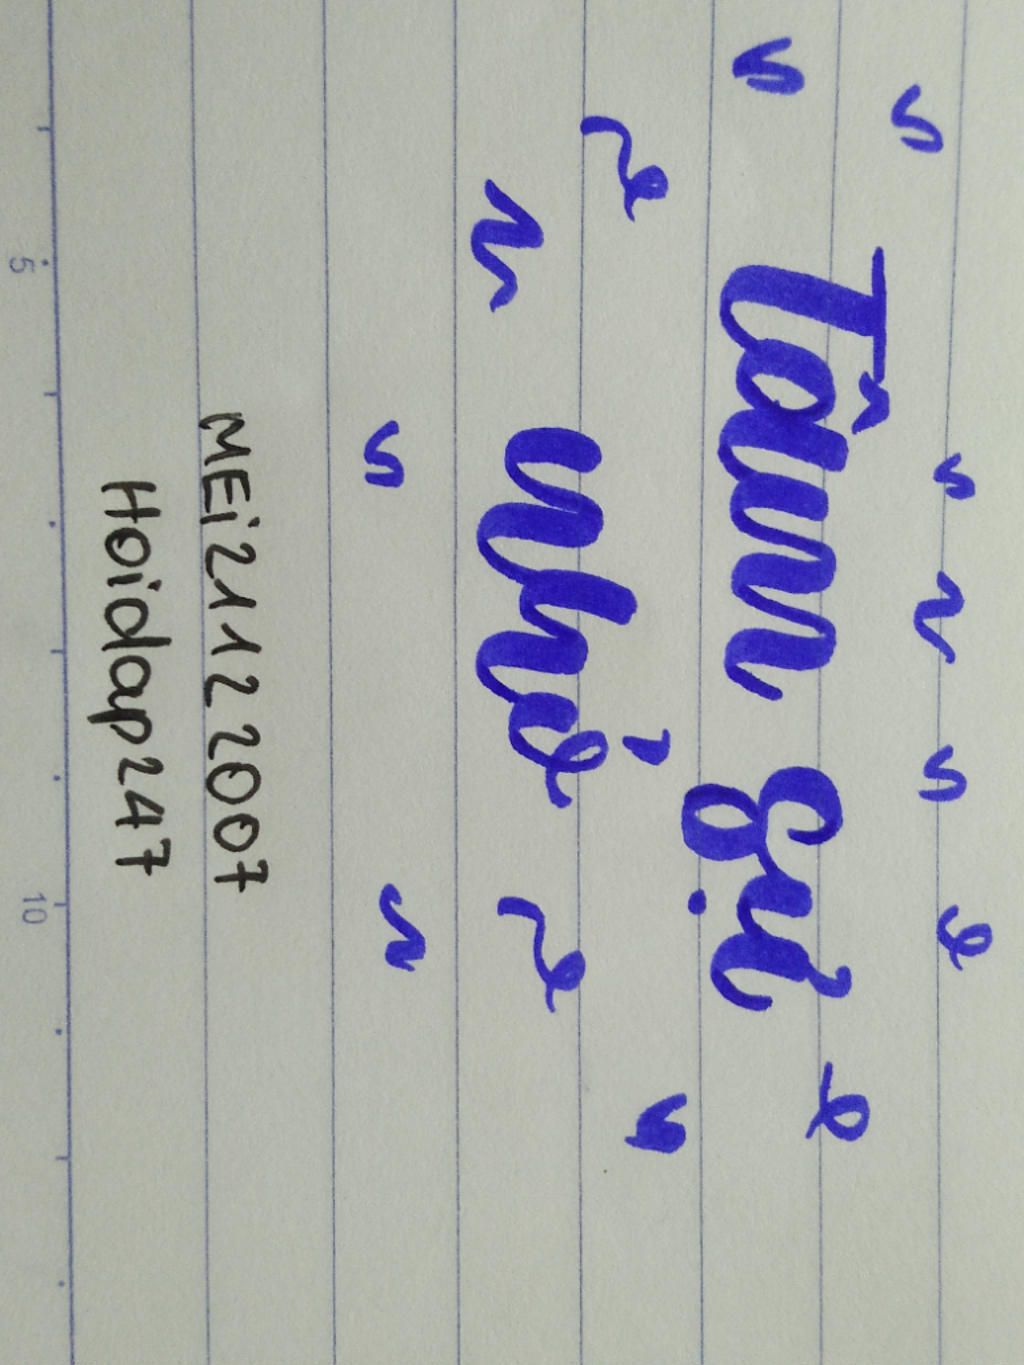 Tâm sự
Nhỏ
MEi21122007
Hoidap247
5 10